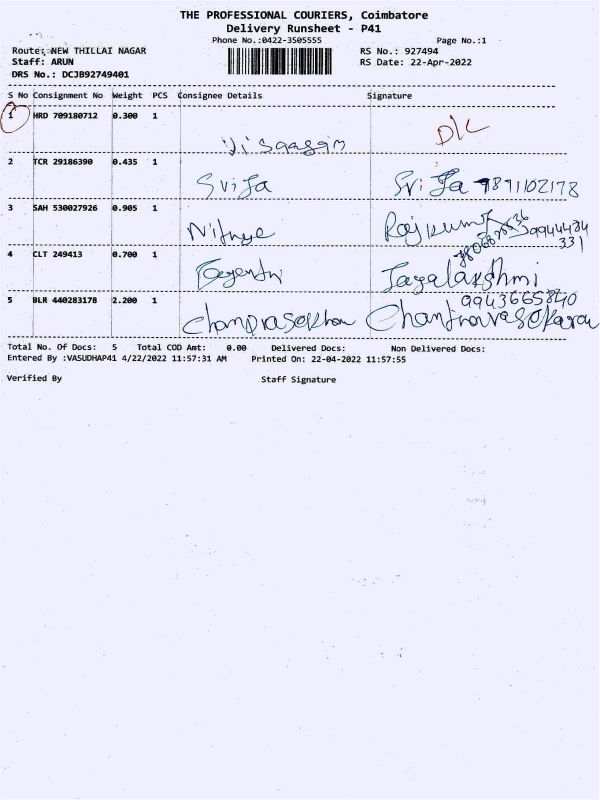 THE PROFESSIONAL COURIERS, Coimbatore
Delivery Runsheet - P41
Phone No.:0422-3505555 Page No.:1
Route: NEW THILLAI NAGAR RS No.: 927494
Staff: ARUN RS Date: 22-Apr-2022
DRS No.: DCJB92749401
S No Consignment No Weight PCS Consignee Details Signature
1 HRD 709180712 0.300 1 D/L
2 TCR 29186390 0.435 1 Srija Srija 9871102178
3 SAH 530027926 0.905 1 Nithye Rajkumar
9944484
331
4 CLT 249413 0.700 1 Jayalakshmi
5 BLR 440283178 2.200 1 9943665840
Total No. Of Docs: 5 Total COD Amt: 0.00 Delivered Docs: Non Delivered Docs:
Entered By :VASUDHAP41 4/22/2022 11:57:31 AM Printed On: 22-04-2022 11:57:55
Verified By Staff Signature